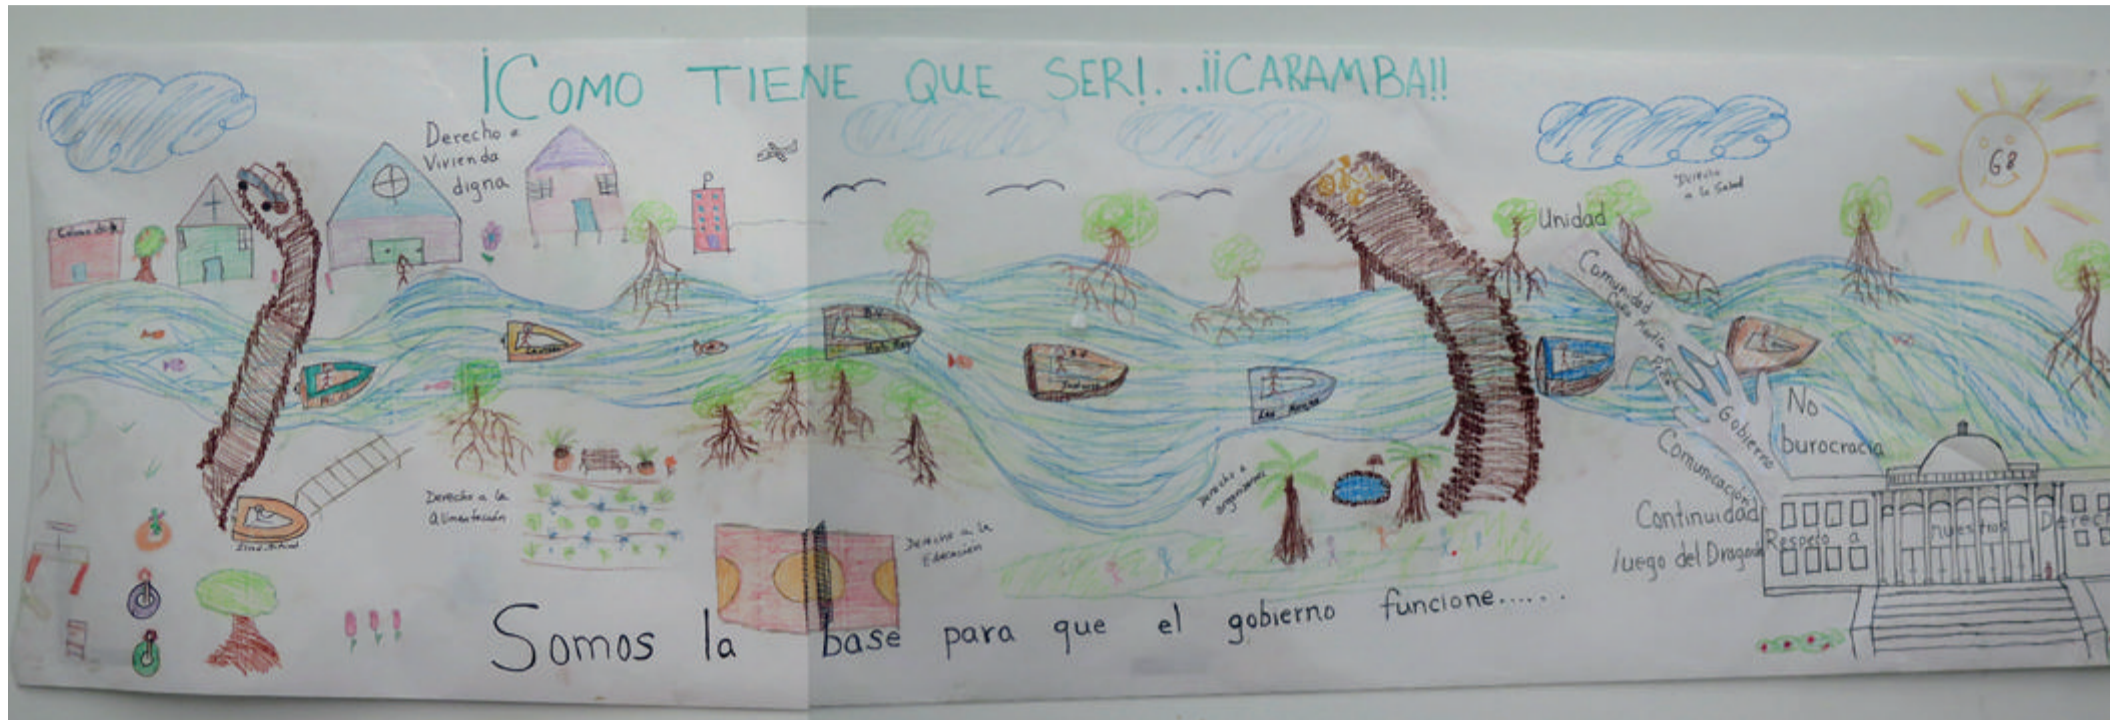 ¡COMO TIENE QUE SER!...¡¡CARAMBA!!
Derecho a
Vivienda
digna
G8
Derecho
a la Salud
Unidad
Comunidad
Gobierno
No
burocracia
Comunicación
Continuidad
luego del Dragado
Respeto a nuestros Derec
Derecho a la
Alimentación
Derecho a
organizarnos
Derecho a la
Educación
Somos la base para que el gobierno funcione......